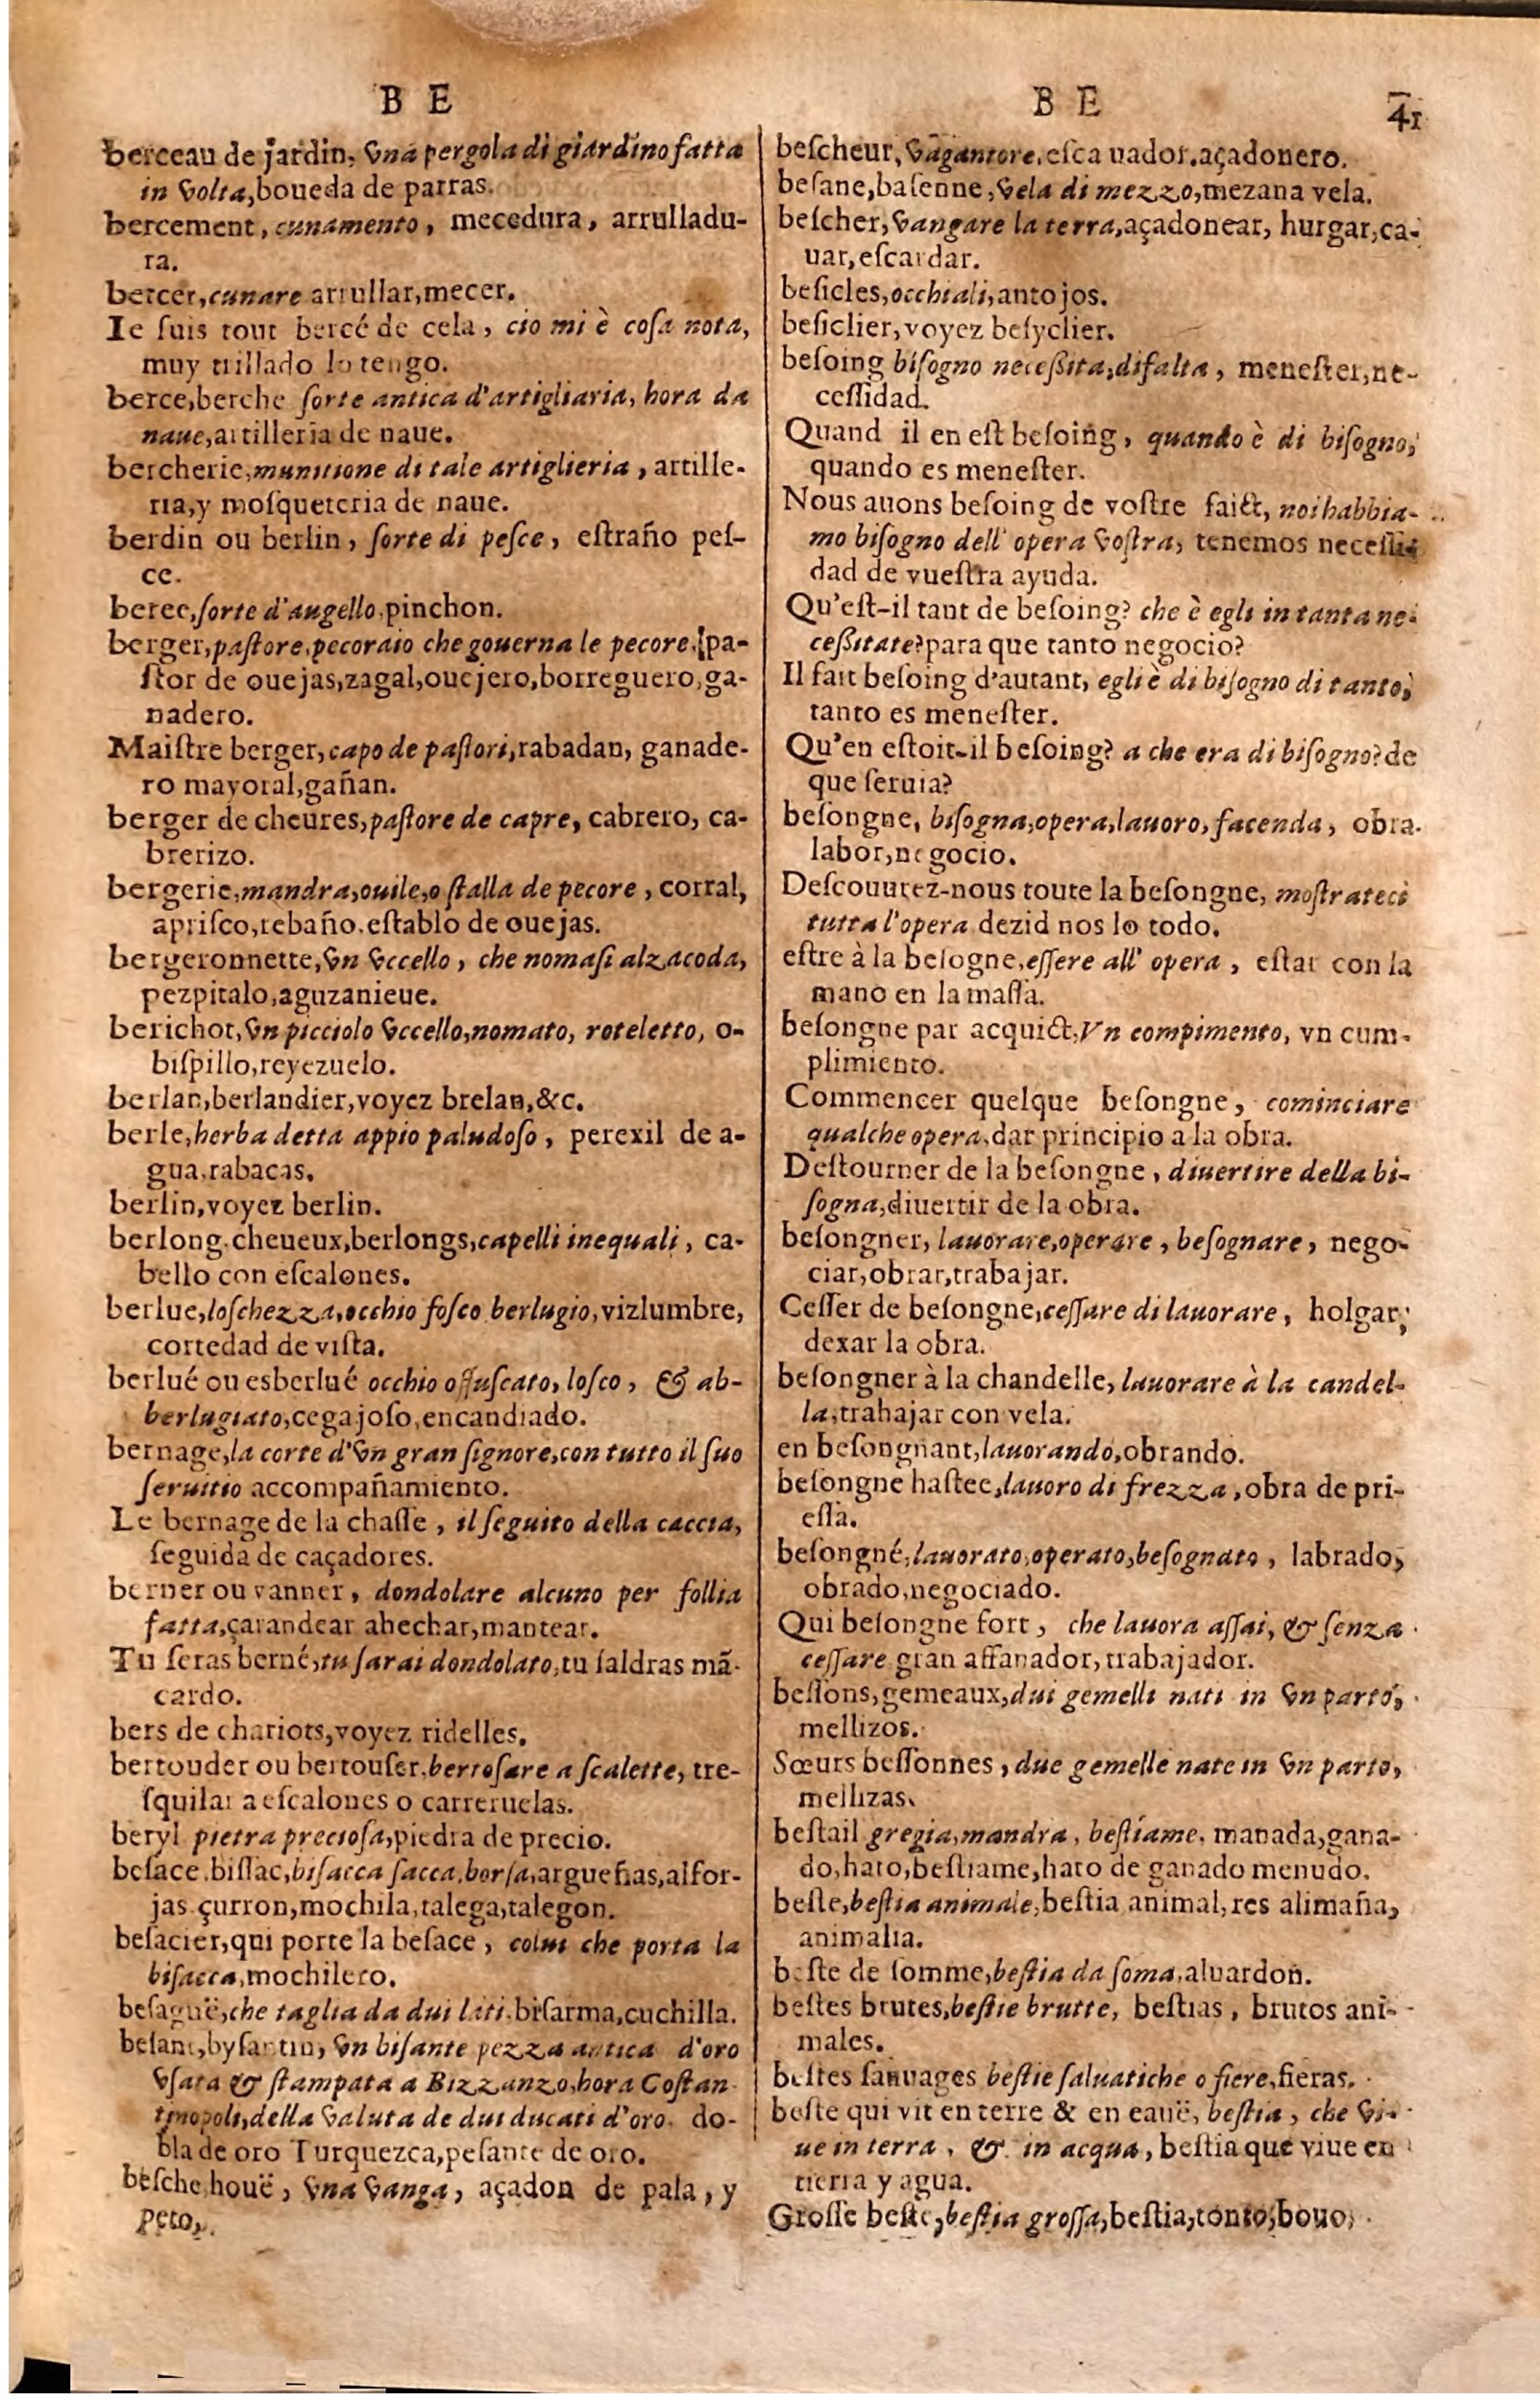 B E
berceau de jardin, vna pergola di giardino fatta
in volta, boueda de parras.
bercement, cunamento, mecedura, arrulladu-
ra.
bercer, cunare arrullar, mecer.
Ie ſuis tout bercé de cela, cio mi è coſa nota,
muy trillado lo tengo.
berce, berche ſorte antica d'artigliaria, hora da
naue, artilleria de naue.
bercherie, munitione di tale artiglieria, artille-
ria, y moſqueteria de naue.
berdin ou berlin, ſorte di peſce, eſtraño peſ-
ce.
beree, ſorte d'augello, pinchon.
berger, paſtore, pecoraio che gouerna le pecore, pa-
ſtor de ouejas, zagal, ouejero, borreguero, ga-
nadero.
Maiſtre berger, capo de paſtori, rabadan, ganade-
ro mayoral, gañan.
berger de cheures, paſtore de capre, cabrero, ca-
brerizo.
bergerie, mandra, ouile, o ſtalla de pecore, corral,
apriſco, rebaño. eſtablo de ouejas.
bergeronnette, vn vccello, che nomaſi alzacoda,
pezpitalo, aguzanieue.
berichot, vn picciolo vccello, nomato, roteletto, o-
biſpillo, reyezuelo.
berlan, berlandier, voyez brelan, &c.
berle, herba detta appio paludoſo, perexil de a-
gua, rabacas.
berlin, voyez berlin.
berlong. cheueux, berlongs, capelli inequali, ca-
bello con eſcalones.
berlue, loſchezza, occhio foſco berlugio, vizlumbre,
cortedad de viſta.
berlué ou esberlué occhio offuſcato, loſco, & ab-
berlugiato, cegajoſo, encandiado.
bernage, la corte d'vn gran ſignore, con tutto il ſuo
ſeruitio accompañamiento.
Le bernage de la chaſſe, il ſeguito della caccia,
ſeguida de caçadores.
berner ou vanner, dondolare alcuno per follia
fatta, çarandear ahechar, mantear.
Tu ſeras berné, tu ſarai dondolato, tu ſaldras mã-
cardo.
bers de chariots, voyez ridelles.
bertouder ou bertouſer, bertoſare a ſcalette, tre-
ſquilar a eſcalones o carreruelas.
beryl pietra precioſa, piedra de precio.
beſace, biſſac, biſacca ſacca, borſa, argueñas, alfor-
jas çurron, mochila, talega, talegon.
beſacier, qui porte la beſace, colui che porta la
biſacca, mochilero.
beſaguë, che taglia da dui lati, biſarma, cuchilla.
beſant, byſantin, vn biſante pezza antica d'oro
vſata & ſtampata a Bizzanzo, hora Coſtan-
tinopoli, della valuta de dui ducati d'oro. do-
bla de oro Turquezca, peſante de oro.
beſche, houë, vna vanga, açadon de pala, y
peto.
B E 41
beſcheur, vagantore, eſcauador, açadonero.
beſane, baſenne, vela di mezzo, mezana vela.
beſcher, vangare la terra, açadonear, hurgar, ca-
uar, eſcardar.
beſicles, occhiali, antojos.
beſiclier, voyez beſyclier.
beſoing biſogno neceßita, difalta, meneſter, ne-
ceſſidad.
Quand il en eſt beſoing, quando è di biſogno,
quando es meneſter.
Nous auons beſoing de voſtre faict, noi habbia-
mo biſogno dell' opera voſtra, tenemos neceſſi-
dad de vueſtra ayuda.
Qu'eſt-il tant de beſoing? che è egli in tanta ne-
ceßitate? para que tanto negocio?
Il fait beſoing d'autant, egli è di biſogno di tanto,
tanto es meneſter.
Qu'en eſtoit-il beſoing? a che era di biſogno? de
que ſeruia?
beſongne, biſogna, opera, lauoro, facenda, obra.
labor, negocio.
Deſcouurez-nous toute la beſongne, moſtrateci
tutta l'opera dezid nos lo todo.
eſtre à la beſogne, eſſere all' opera, eſtar con la
mano en la maſſa.
beſongne par acquict, Vn compimento, vn cum-
plimiento.
Commencer quelque beſongne, cominciare
qualche opera, dar principio a la obra.
Deſtourner de la beſongne, diuertire della bi-
ſogna, diuertir de la obra.
beſongner, lauorare, operare, beſognare, nego-
ciar, obrar, trabajar.
Ceſſer de beſongne, ceſſare di lauorare, holgar,
dexar la obra.
beſongner à la chandelle, lauorare à la candel-
la, trabajar con vela.
en beſongnant, lauorando, obrando.
beſongne haſtee, lauoro di frezza, obra de pri-
eſſa.
beſongné, lauorato, operato, beſognato, labrado,
obrado, negociado.
Qui beſongne fort, che lauora aſſai, & ſenza
ceſſare gran affanador, trabajador.
beſſons, gemeaux, dui gemelli nati in vn parto,
mellizos.
Sœurs beſſonnes, due gemelle nate in vn parto,
mellizas.
beſtail gregia, mandra, beſtiame, manada, gana-
do, hato, beſtiame, hato de ganado menudo.
beſte, beſtia animale, beſtia animal, res alimaña,
animalia.
beſte de ſomme, beſtia da ſoma, aluardon.
beſtes brutes, beſtie brutte, beſtias, brutos ani-
males.
beſtes ſauuages beſtie ſaluatiche o fiere, fieras.
beſte qui vit en terre & en eauë, beſtia, che vi-
ue in terra, & in acqua, beſtia que viue en
tierra y agua.
Groſſe beſte, beſtia groſſa, beſtia, tonto, bouo,